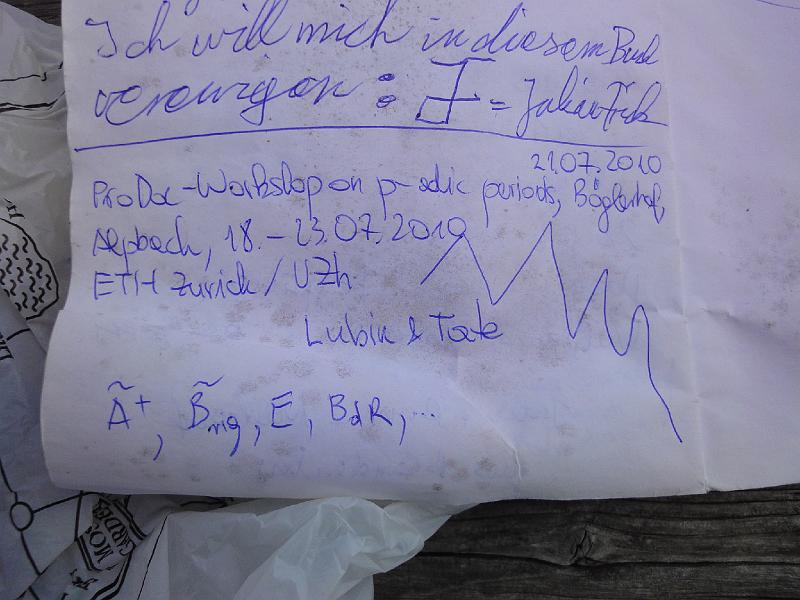 Ich will mich in diesem Buch
verewigen: J = Fick
21.07.2010
ProDoc-Workshop on p-adic periods, Böglerhof,
Alpbach, 18.-23.07.2010
ETH Zürich/UZh
Lubin & Tate
Ã+, B̃rig, E, BdR, ...